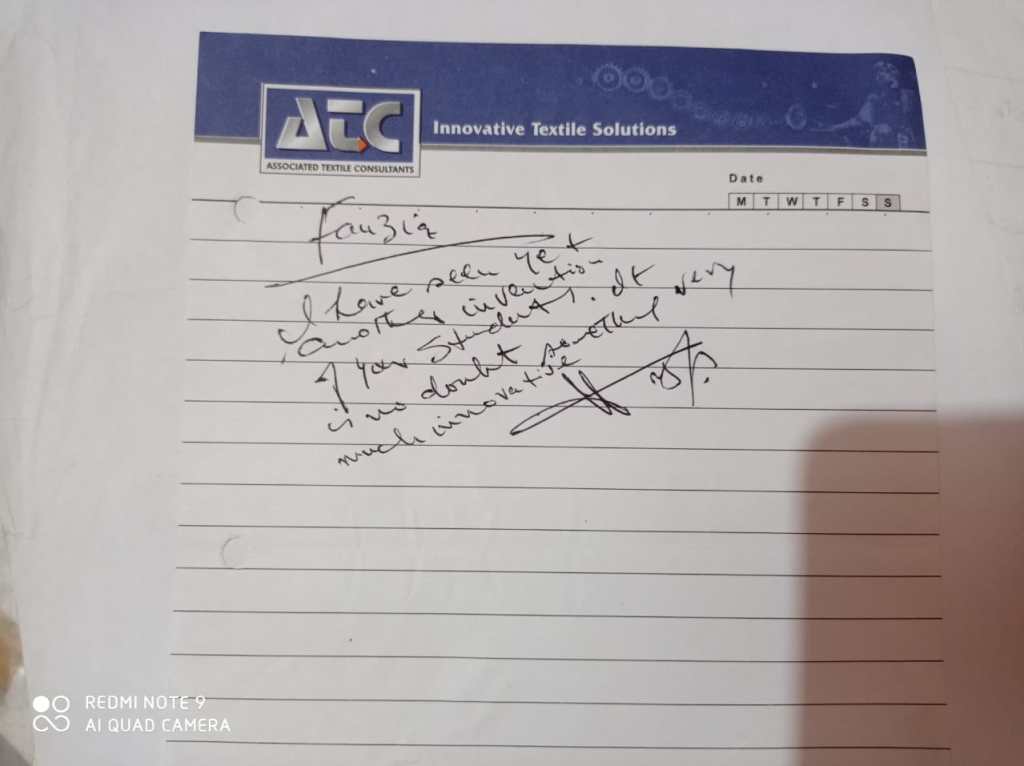 ATC
ASSOCIATED TEXTILE CONSULTANTS
Innovative Textile Solutions
Date
M T W T F S S
Fauzia
I have seen yet
another invention
of your students. It
is no doubt something very
much innovative
REDMI NOTE 9
AI QUAD CAMERA